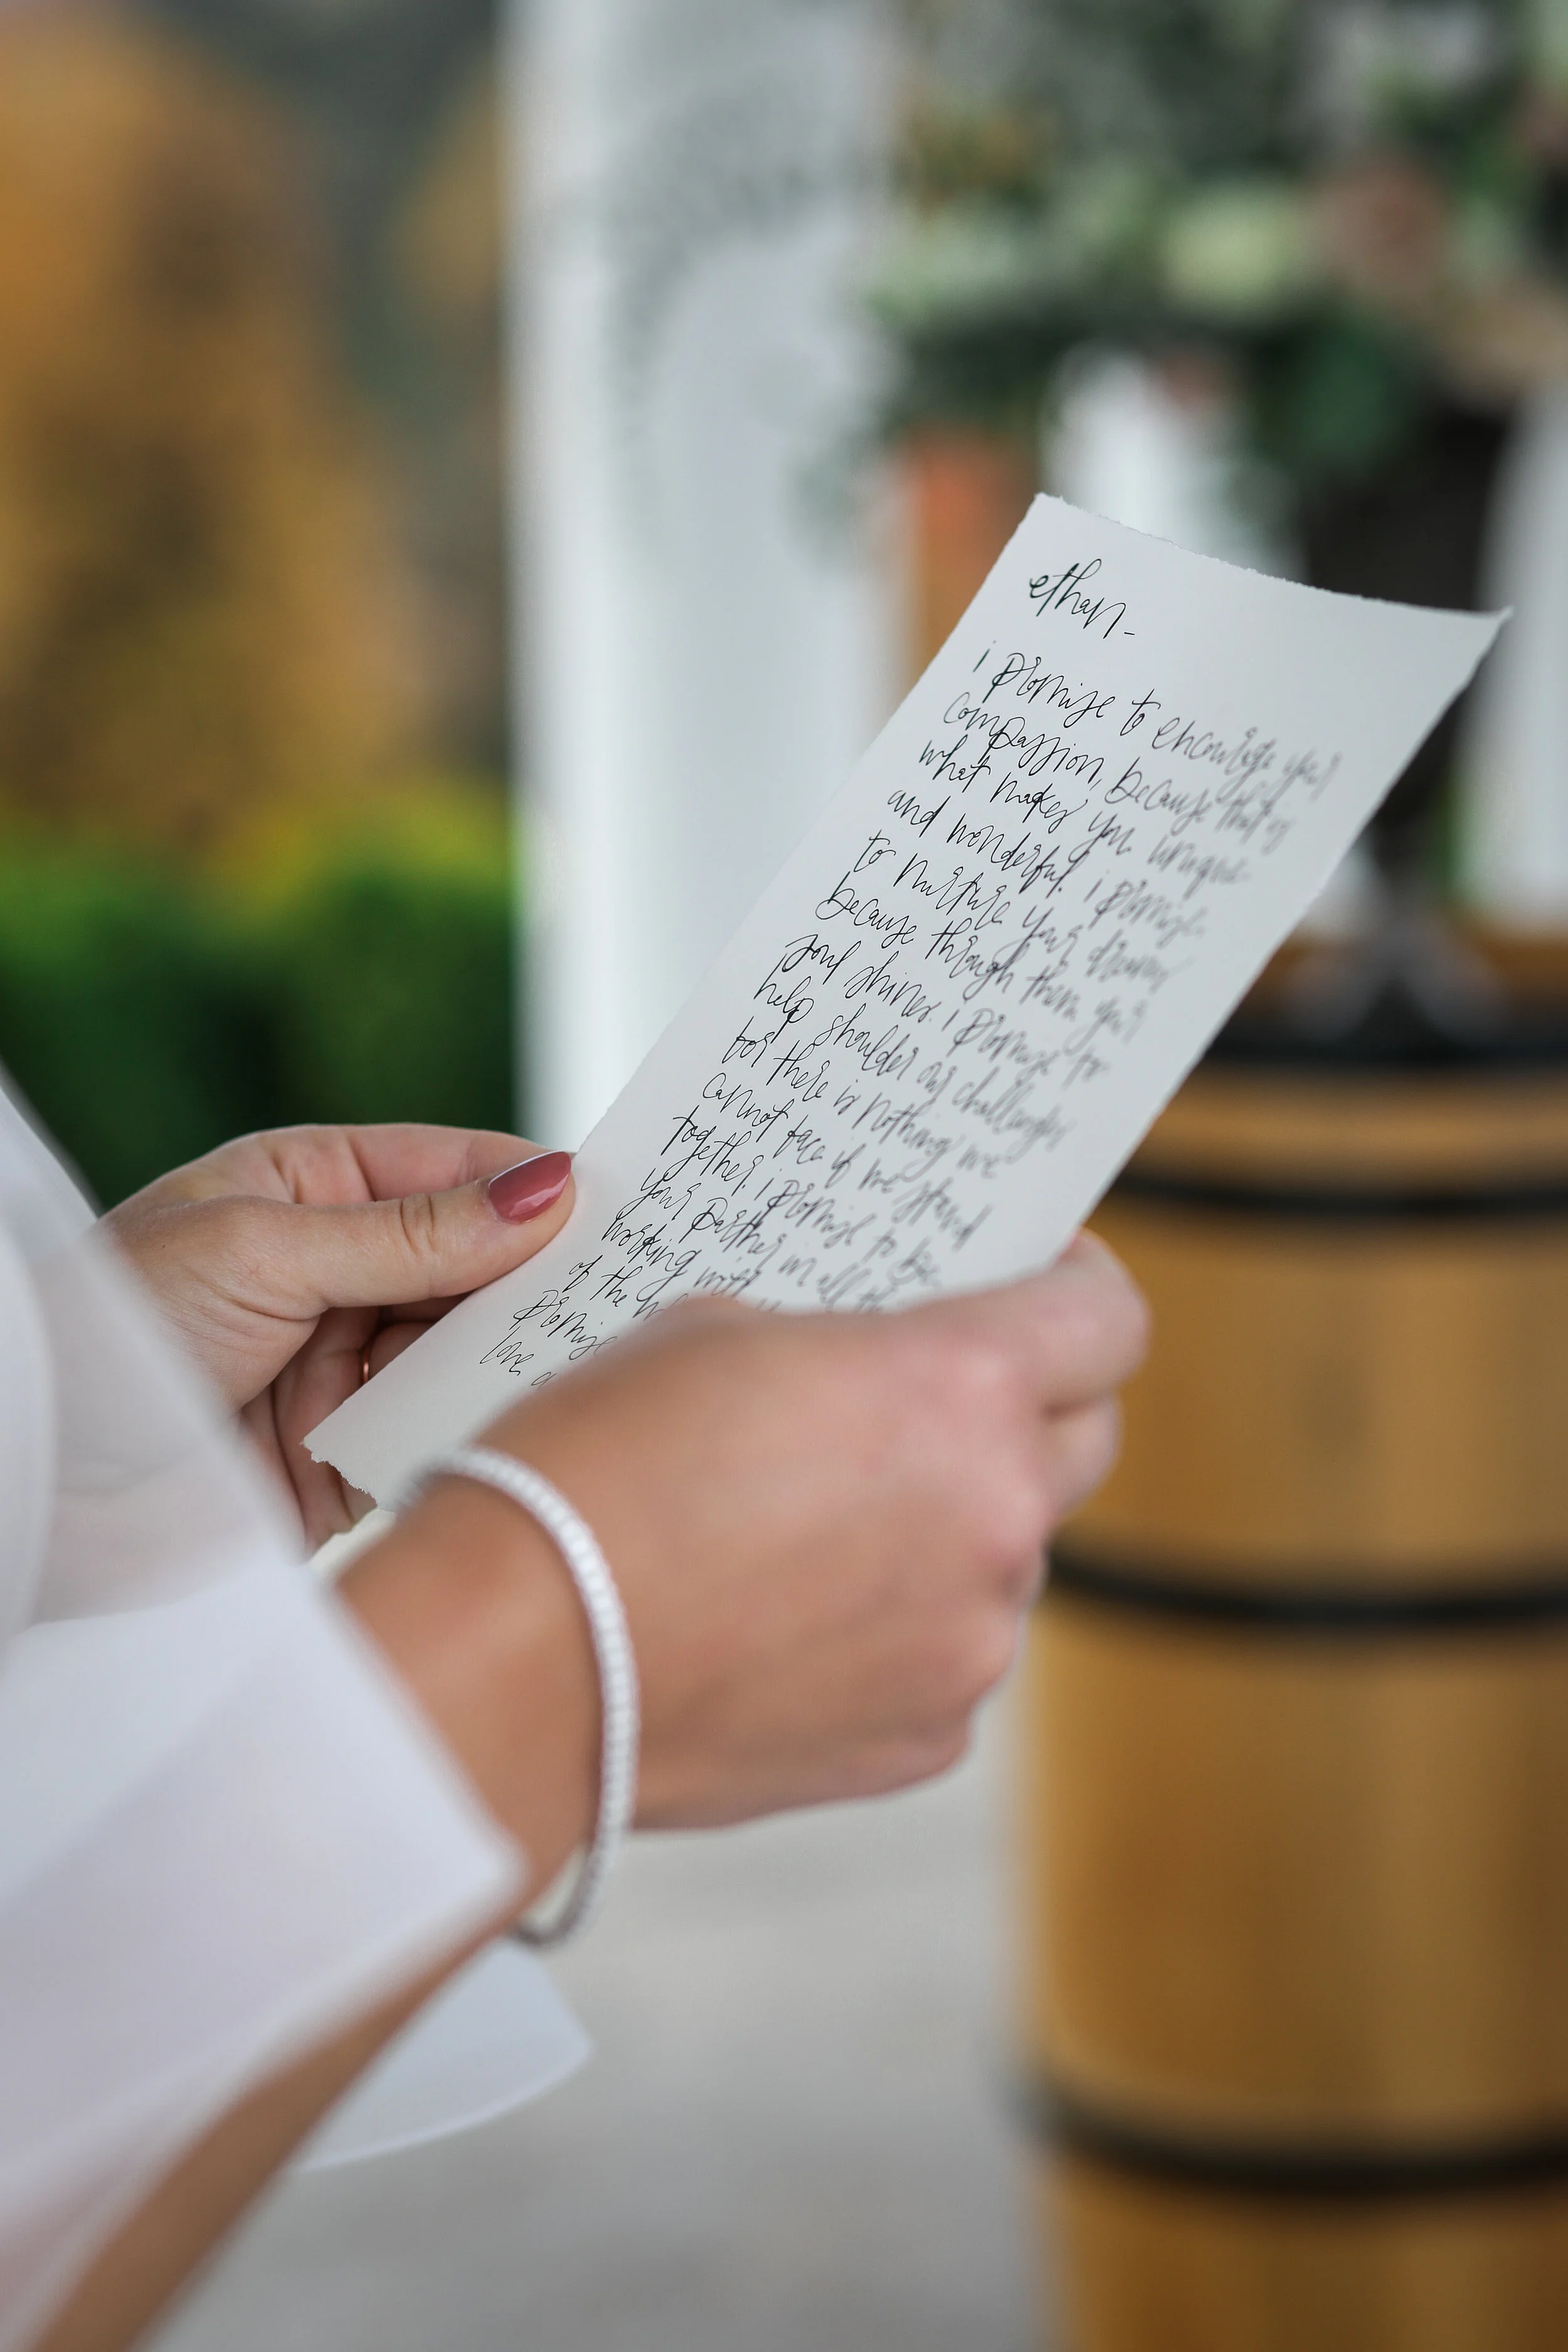 ethan-
i promise to encourage your
compassion, because that is
what makes you unique
and wonderful. i promise
to nurture your dreams
because through them your
soul shines. i promise to
help shoulder our challenges
for there is nothing we
cannot face if we stand
together. i promise to be
your partner in all
working with
of the
promise
love